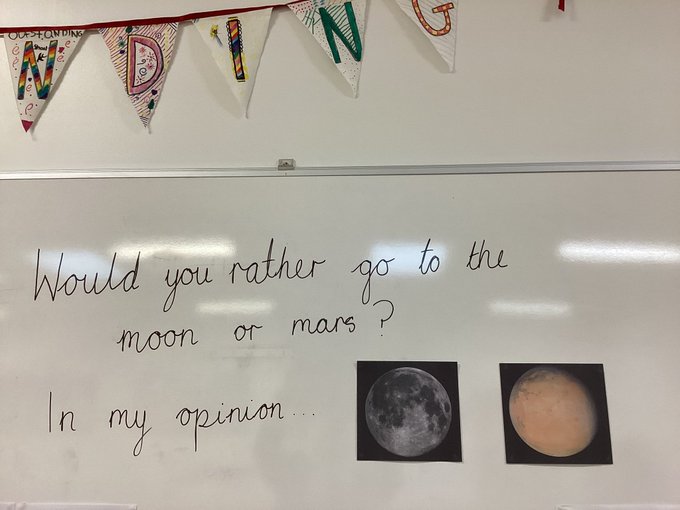 OUTSTANDING
N D I N G
Would you rather go to the
moon or mars?
In my opinion...